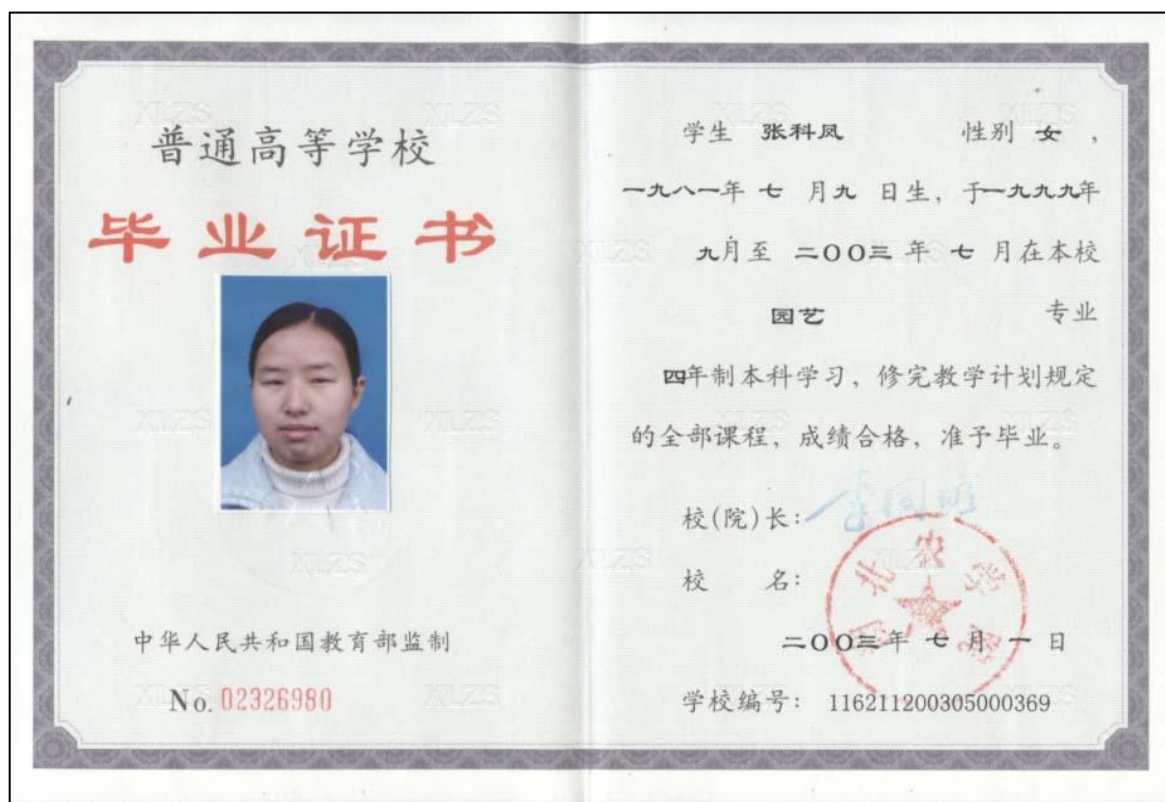 普通高等学校
毕业证书
中华人民共和国教育部监制
No. 02326980
学生 张科凤 性别 女,
一九八一年 七 月九 日生, 于一九九九年
九月至 二〇〇三 年 七 月在本校
园艺 专业
四年制本科学习, 修完教学计划规定
的全部课程, 成绩合格, 准予毕业。
校(院)长: 李同明
校 名:
北农学院
二〇〇三年 七 月 一 日
学校编号: 116211200305000369
XLZS
XLZS
XLZS
XLZS
XLZS
XLZS